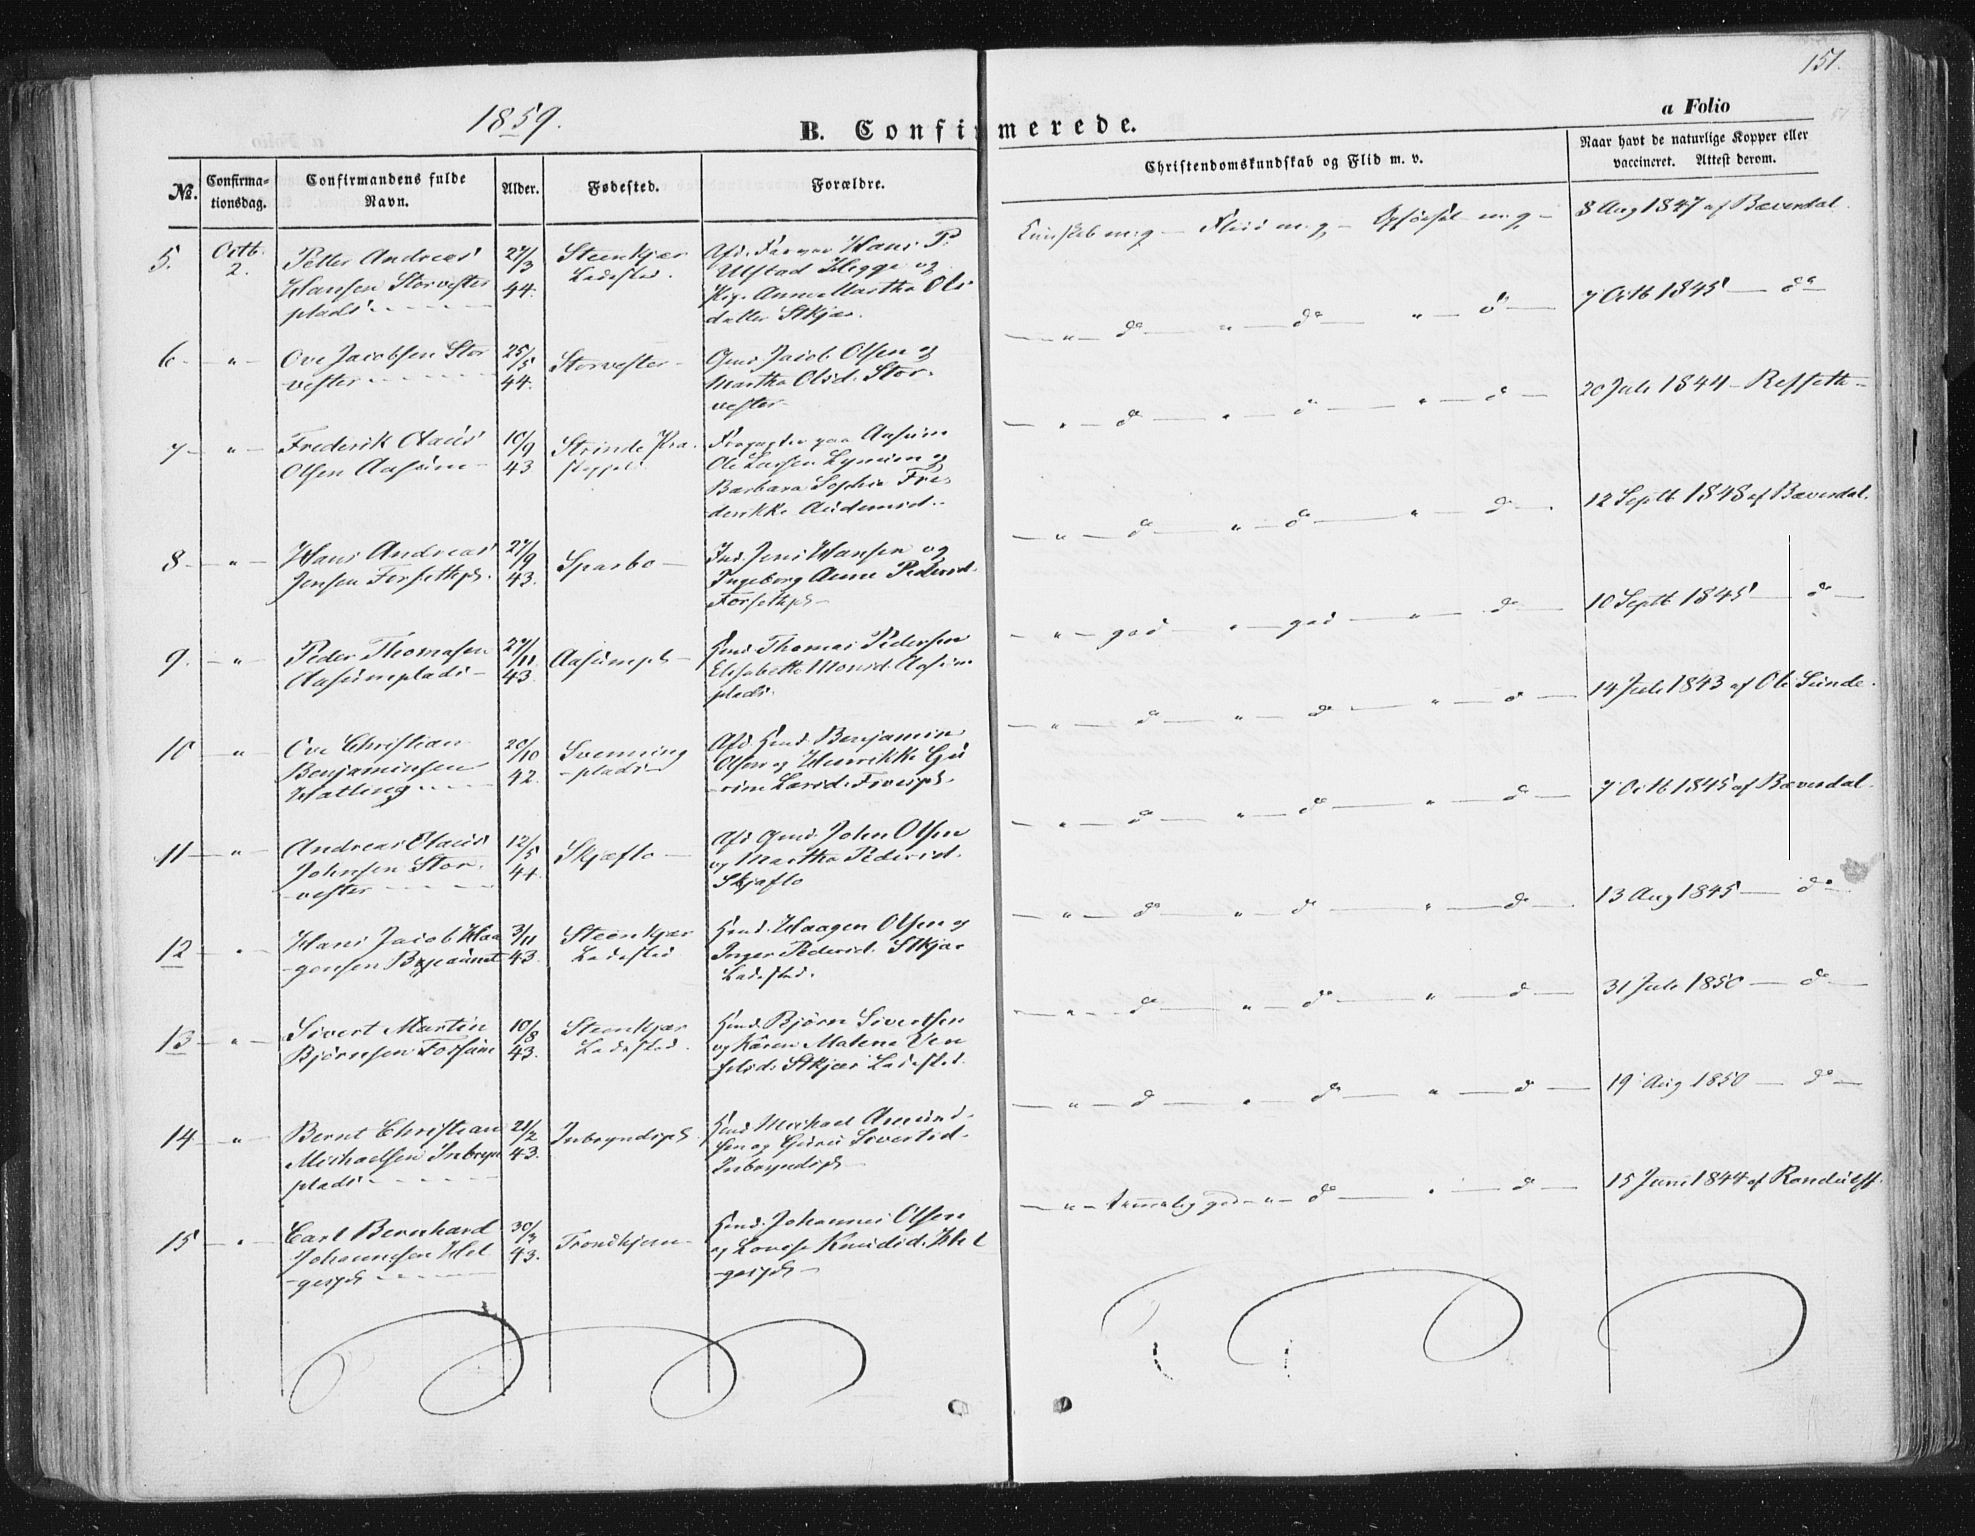 151.
1859.
B. Confirmerede.
a Folio
No.
Confirma-
tionsdag.
Confirmandens fulde
Navn.
Alder.
Fødested.
Forældre.
Christendomskundskab og Flid m. v.
Naar havt de naturlige Kopper eller
vaccineret. Attest derom.
5.
Octb.
2.
Petter Andreas
Hansen Storvester
plads
27/3
44.
Steenkjær
Ladested.
Afd. Farver Hans P.
Ulstad Hegge og
Pige Anne Martha Ols
datter Stkjær.
Kundskab m. g. — Flid m. g. — Opførsel m. g. —
8 Aug 1847 af Bæverdal.
6 — " —
Ove Jacobsen Stor
vester
25/5
44.
Storvester —
Gmd. Jacob Olsen og
Martha Olsd. Stor-
vester
— " — do — " — do — " — do —
7 Octb 1845 — do
7 — " —
Frederik Olaus
Olsen Aasum —
10/9
43
Strinde Præ-
stegjeld
Forpagter paa Aasum
Ole Larsen Lynum og
Barbara Sophie Fre-
derikke
— " — do — " — do — " — do —
20 Juli 1844 —
8 — " —
Hans Andreas
Jensen Forsethpl.
27/9
43.
Sparbo —
Ind. Jens Hansen og
Ingeborg Anne Pedersd.
Forsethpl —
— " — do — " — do — " — do —
12 Septb 1848 af Bæverdal.
9. — " —
Peder Thomasen
Aasumplads —
27/11
43.
Aasumpl —
Hmd. Thomas Pedersen
Elisabeth Monsd. Aasum
plads.
— " — god — " — god — " — do —
10 Septb 1845 — do —
10 "
Ove Christian
Benjaminsen
Hatling
20/10
42.
Svenning
— plads —
Afd. Hmd. Benjamin
Olsen og Henrikke Gu
— rine Larsd.
— " — do — " — do — " — do —
14 Juli 1843 af Ole Sunde.
11 — " —
Andreas Olaus
Johnsen Stor-
— vester
12/5
44.
Skjeflo —
Afd. Gmd. John Olsen
og Martha Pedersd.
Skjeflo
— " — do — " — do — " — do —
7 Octb 1845 af Bæverdal.
12 — " —
Hans Jacob Haa
— gensen
3/11
43.
Steenkjær
Ladested
Hmd. Haagen Olsen og
Inger Pedersd. Stkjær
Ladested.
— " — do — " — do — " — do —
13 Aug 1845 — do —
13 — " —
Sivert Martin
Bjørnsen Fossum
10/8
43.
Steenkjær
Ladested.
Hmd. Bjørn Sivertsen
og Karen Malena
Stkjær Ladested.
— " — do — " — do — " — do —
31 Juli 1850 — do —
14 — " —
Bernt Christian
Michaelsen Inbryn
plads
21/2
43.
Inbryndspl.
Hmd. Michael Amund-
sen og Guru Sivertsd.
Inbryndspl —
— " — do — " — do — " — do —
19 Aug 1850 — do —
15 — " —
Carl Bernhard
Johannesen Hel
— gespl
30/3
43.
Trondhjem —
Hmd. Johannes Olsen
og Lovise Knudsd. Hel
— gespl —
— " — temmelig god — " — do — " — do —
15 Juni 1844 af Randulff.